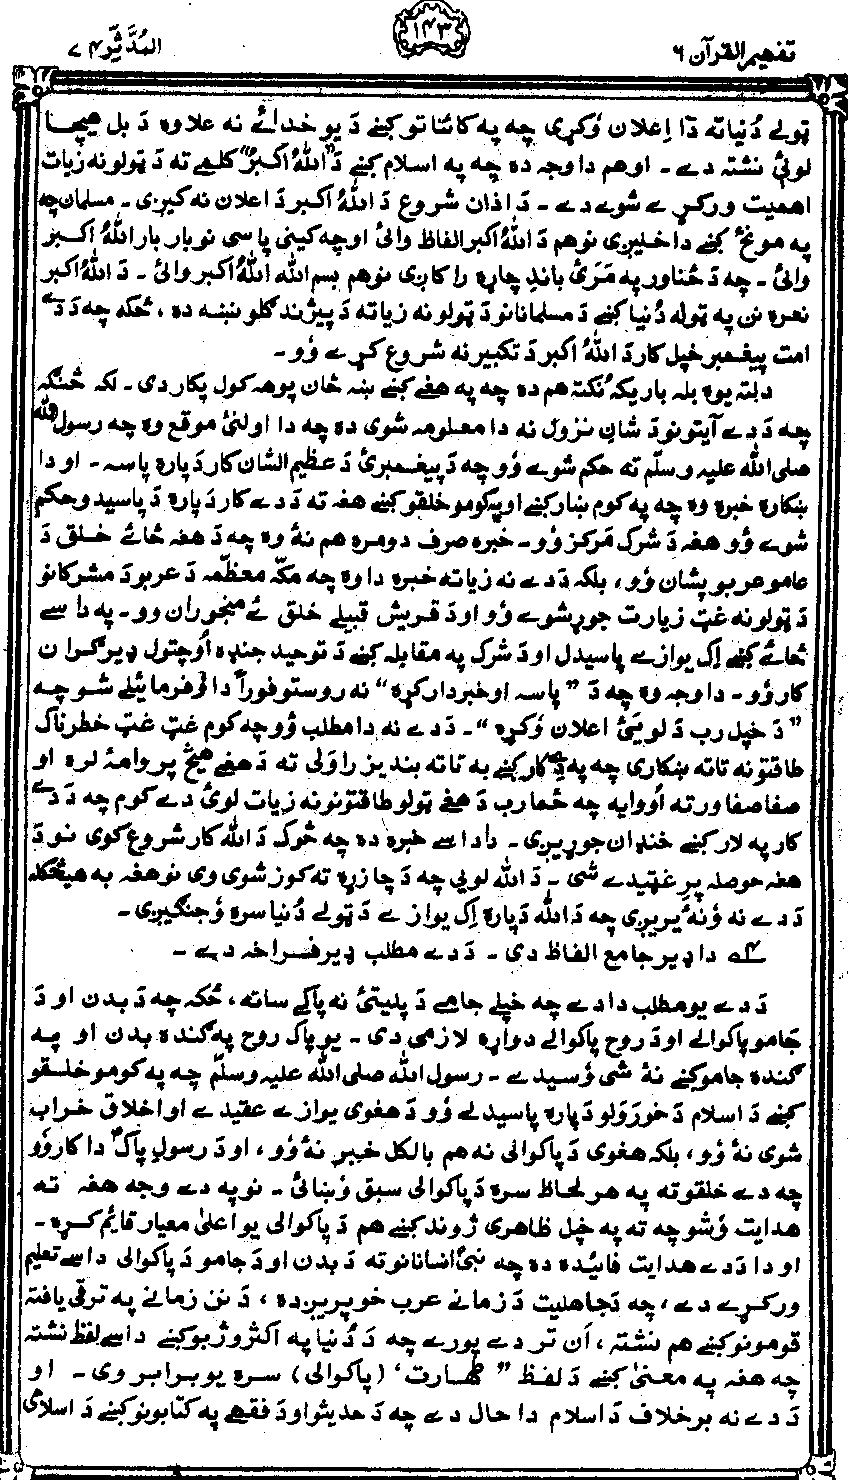 تفهیم القرآن ۶
۱۴۳
المُدَّثِّر ۷۴
ټولے دُنیاته دَا اِعلان وُکړی چه په کائناتو کښے دَ یو خدائے نه علاوه دَ بل هیچا
لوئی نشته دے۔ اوهم دا وجه ده چه په اسلام کښے دَ "اَللهُ اَکبرُ" کلمے ته دَ ټولو نه زیات
اهمیت ورکړے شوے دے۔ دَ اذان شروع دَ اللهُ اکبر دَ اعلان نه کیږی۔ مسلمان چه
په مونځ کښے داخلیږی نو هم دَ اللهُ اکبر الفاظ وائی اوچه کینی پاسی نو بار بار اللهُ اکبر
وائی۔ چه دَ ځناور په مَرَئ باندِ چاړه راکاږی نو هم بسم الله اللهُ اکبر وائی۔ دَ اللهُ اکبر
نعره نن په ټوله دُنیا کښے دَ مسلمانانو دَ ټولو نه زیاته دَ پیژندګلو نښه ده، ځکه چه دَ دے
امت پیغمبر خپل کار دَ اللهُ اکبر دَ تکبیر نه شروع کړے وُو۔
دلته یوه بله باریکه نُکته هم ده چه په هغے کښے ښه ځان پوهه کول پکار دی۔ لکه څنګه
چه دَ دے آیتونو دَ شانِ نزول نه دا معلومه شوی ده چه دا اولنئ موقع وه چه رسول الله
صلی الله علیه وسلّم ته حکم شوے وُو چه دَ پیغمبرئ دَ عظیم الشان کار دَپاره پاسه۔ او دا
ښکاره خبره وه چه په کوم ښار کښے او په کومو خلقو کښے هغه ته دَ دے کار دَپاره دَ پاسیدو حکم
شوے وُو هغه دَ شرک مَرکز وُو۔ خبره صرف دومره هم نهٔ وه چه دَ هغه ځائے خلق دَ
عامو عربو پشان وُو، بلکه دَ دے نه زیاته خبره دا وه چه مکّه معظّمه دَ عربو دَ مشرکانو
دَ ټولو نه غټ زیارت جوړ شوے وُو او دَ قریش قبیلے خلق ئے منجوران وو۔ په داسے
ځائے کښے اِک یوازے پاسیدل او دَ شرک په مقابله کښے دَ توحید جنډه اُوچتول ډیر ګران
کار وُو۔ دا وجه وه چه دَ "پاسه او خبردار کړه" نه روستو فوراً دا وُفرمائیلے شو چه
"دَ خپل رب دَ لویئ اعلان وُکړه"۔ دَ دے نه دا مطلب وُو چه کوم غټ غټ خطرناک
طاقتونه تاته ښکاری چه په دے کار کښے به تاته بندیز راوَلی ته دَ هغے هیڅ پروا مهٔ لره او
صفا صفا ورته اُووایه چه ځما رب دَ هغے ټولو طاقتونو نه زیات لوئ دے کوم چه دَ دے
کار په لار کښے خنډان جوړیږی۔ دا داسے خبره ده چه څوک دَ الله کار شروع کوی نو دَ
هغه حوصله پرِ غټیدے شی۔ دَ الله لوئی چه دَ چا زړه ته کوز شوی وی نو هغه به هیڅکله
دَ دے نه وُنهٔ یریږی چه دَ الله دَپاره اِک یوازے دَ ټولے دُنیا سره وُجنګیږی۔
دا ډیر جامع الفاظ دی۔ دَ دے مطلب ډیر فراخه دے۔
دَ دے یو مطلب دا دے چه خپلے جامے دَ پلیتئ نه پاکے ساته، ځکه چه دَ بدن او دَ
جَامو پاکوالے او دَ روح پاکوالے دواړه لازمی دی۔ یو پاک روح په ګنده بدن او په
ګنده جامو کښے نهٔ شی وُسیدے۔ رسول الله صلی الله علیه وسلّم چه په کومو خلقو
کښے دَ اسلام دَ خورَوَلو دَپاره پاسیدلے وُو دَ هغوی یوازے عقیدے او اخلاق خراب
شوی نهٔ وُو، بلکه هغوی دَ پاکوالی نه هم بالکل خبر نهٔ وُو، او دَ رسولِ پاکؐ دا کار وُو
چه دے خلقو ته په هر لحاظ سره دَ پاکوالی سبق وُښائی۔ نو په دے وجه هغه ته
هدایت وُشو چه ته په خپل ظاهری ژوند کښے هم دَ پاکوالی یو اعلیٰ معیار قایم کړه۔
او دا دَ دے هدایت فائیده ده چه نبیؐ انسانانو ته دَ بدن او دَ جامو دَ پاکوالی داسے تعلیم
ورکړے دے، چه دَ جاهلیت دَ زمانے عرب خو پریږده، دَ نن زمانے په ترقی یافته
قومونو کښے هم نشته، اَن تر دے پورے چه دَ دُنیا په اکثرو ژبو کښے داسے لفظ نشته
چه هغه په معنیٰ کښے دَ لفظ "طهارت" (پاکوالی) سره یو برابر وی۔ او
دَ دے نه برخلاف دَ اسلام دا حال دے چه دَ حدیثو او دَ فقهے په کتابونو کښے دَ اسلامی